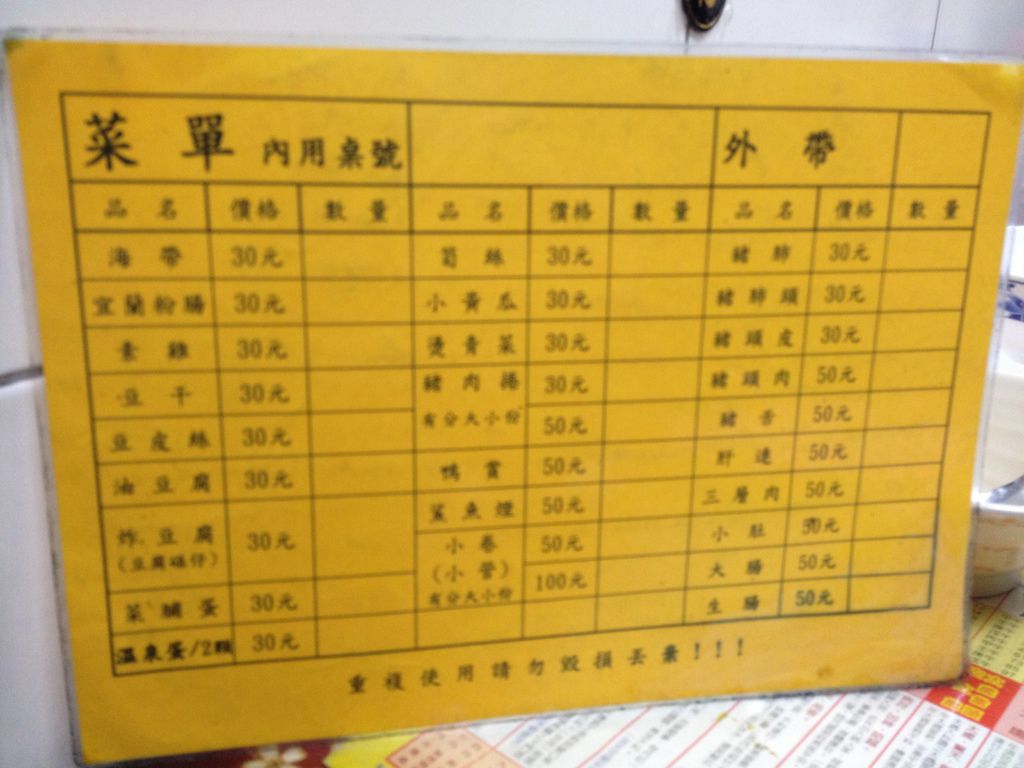 菜單 內用桌號 外帶
品名 價格 數量 品名 價格 數量 品名 價格 數量
海帶 30元 筍絲 30元 豬肺 30元
宜蘭粉腸 30元 小黃瓜 30元 豬肺頭 30元
素雞 30元 燙青菜 30元 豬頭皮 30元
豆干 30元 豬肉捲 30元 豬頭肉 50元
有分大小份 50元 豬舌 50元
豆皮絲 30元 鴨賞 50元 肝連 50元
油豆腐 30元 鯊魚煙 50元 三層肉 50元
炸豆腐 30元 小卷 50元 小肚 50元
(豆腐磕仔) (小管) 100元 大腸 50元
菜脯蛋 30元 有分大小份 生腸 50元
溫泉蛋/2顆 30元
重複使用請勿毀損丟棄!!!